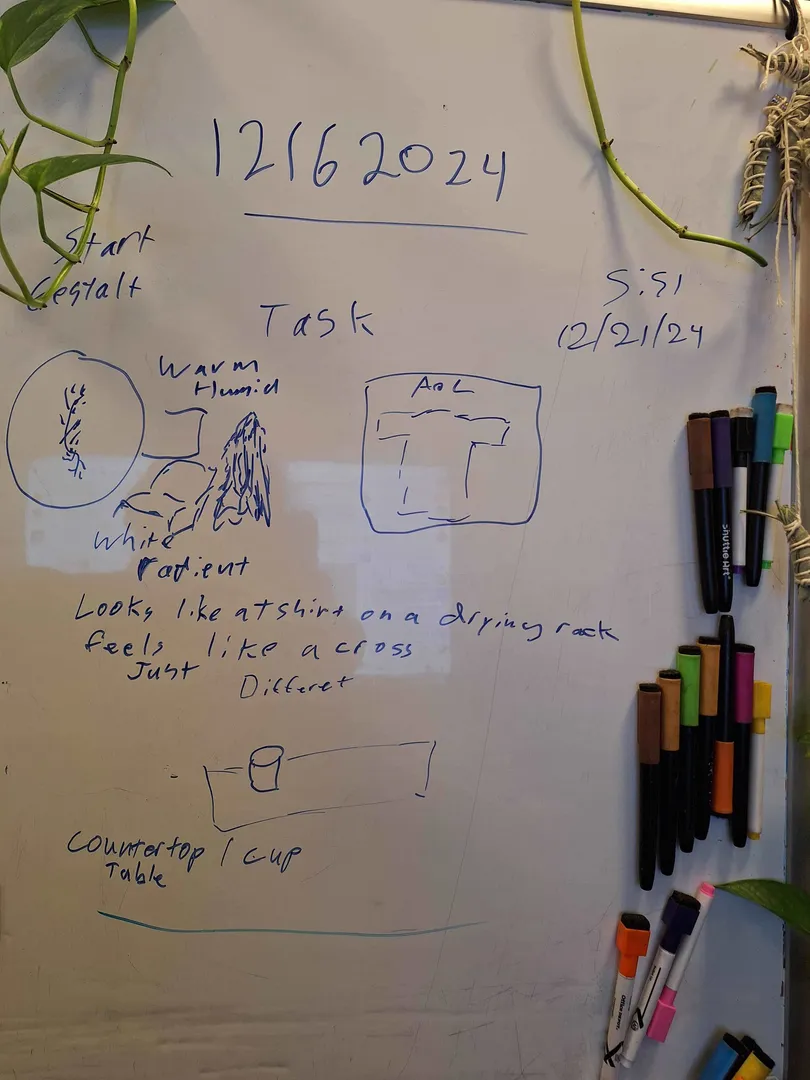 12162024
Start
Gestalt
Task
5:51
12/21/24
Warm
Humid
AOL
White
Radient
Looks like a tshirt on a drying rack
feels like a cross
Just
Differet
Countertop / cup
Table
shuttle Art